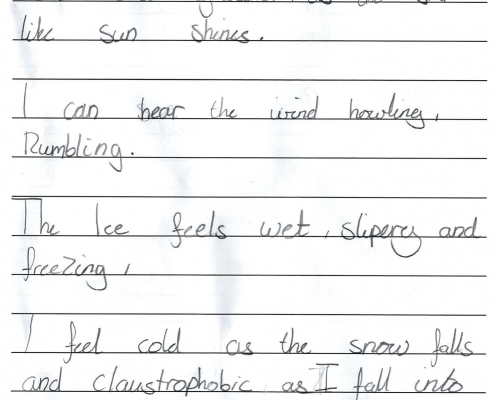 like sun shines.
I can hear the wind howling,
Rumbling.
The Ice feels wet, slipery and
freeZing,
I feel cold as the snow falls
and claustrophobic as I fall into